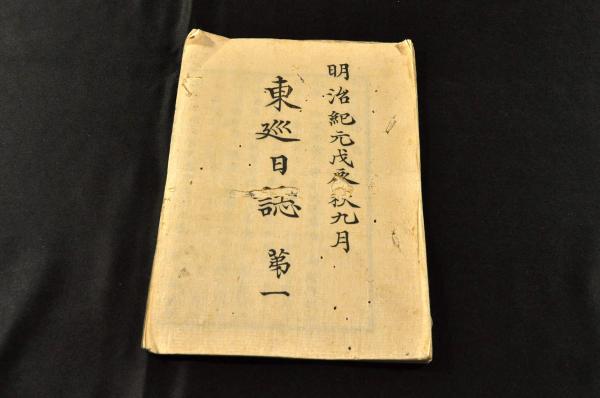 明治紀元戊辰秋九月
東巡日誌 第一